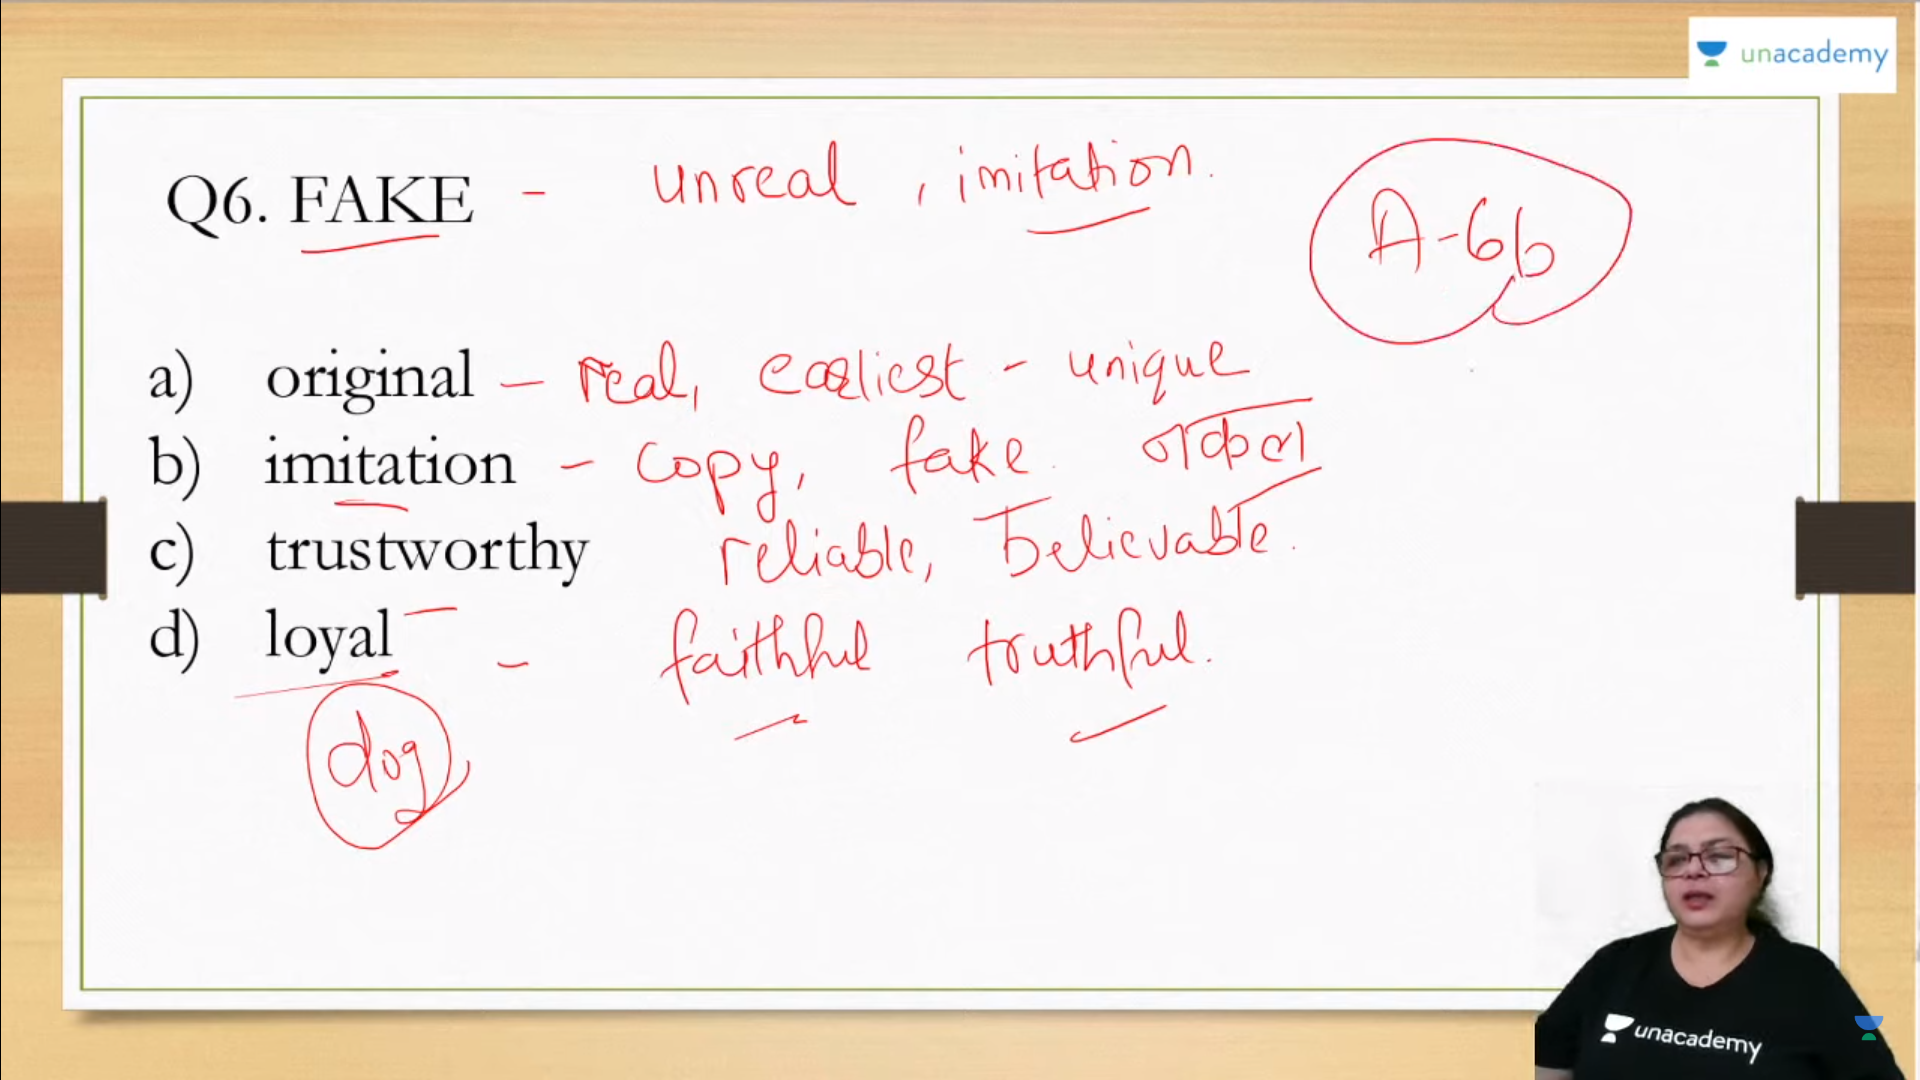 unacademy
Q6. FAKE - unreal, imitation.
A-6b
a) original - real, earliest - unique
b) imitation - copy, fake. नकल
c) trustworthy reliable, believable.
d) loyal - faithful truthful.
dog
unacademy